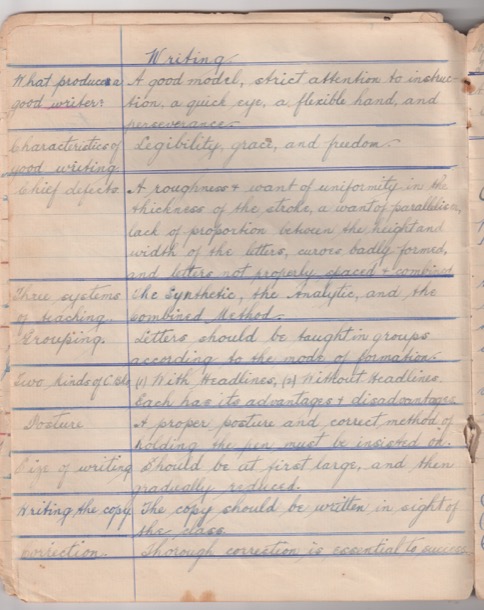 Writing
What produces a A good model, strict attention to instruc-
good writer? tion, a quick eye, a flexible hand, and
perseverance.
Characteristics of Legibility, grace, and freedom.
good writing.
Chief defects. A roughness & want of uniformity in the
thickness of the stroke, a want of parallelism,
lack of proportion between the height and
width of the letters, curves badly formed,
and letters not properly spaced & combined
Three systems The Synthetic, the Analytic, and the
of teaching. Combined Method.
Grouping. Letters should be taught in groups
according to the mode of formation.
Two kinds of C. Bks (1) With Headlines, (2) Without Headlines.
Each has its advantages & disadvantages
Posture A proper posture and correct method of
holding the pen must be insisted on.
Size of writing Should be at first large, and then
gradually reduced.
Writing the copy The copy should be written in sight of
the class.
Correction. Thorough correction is essential to success